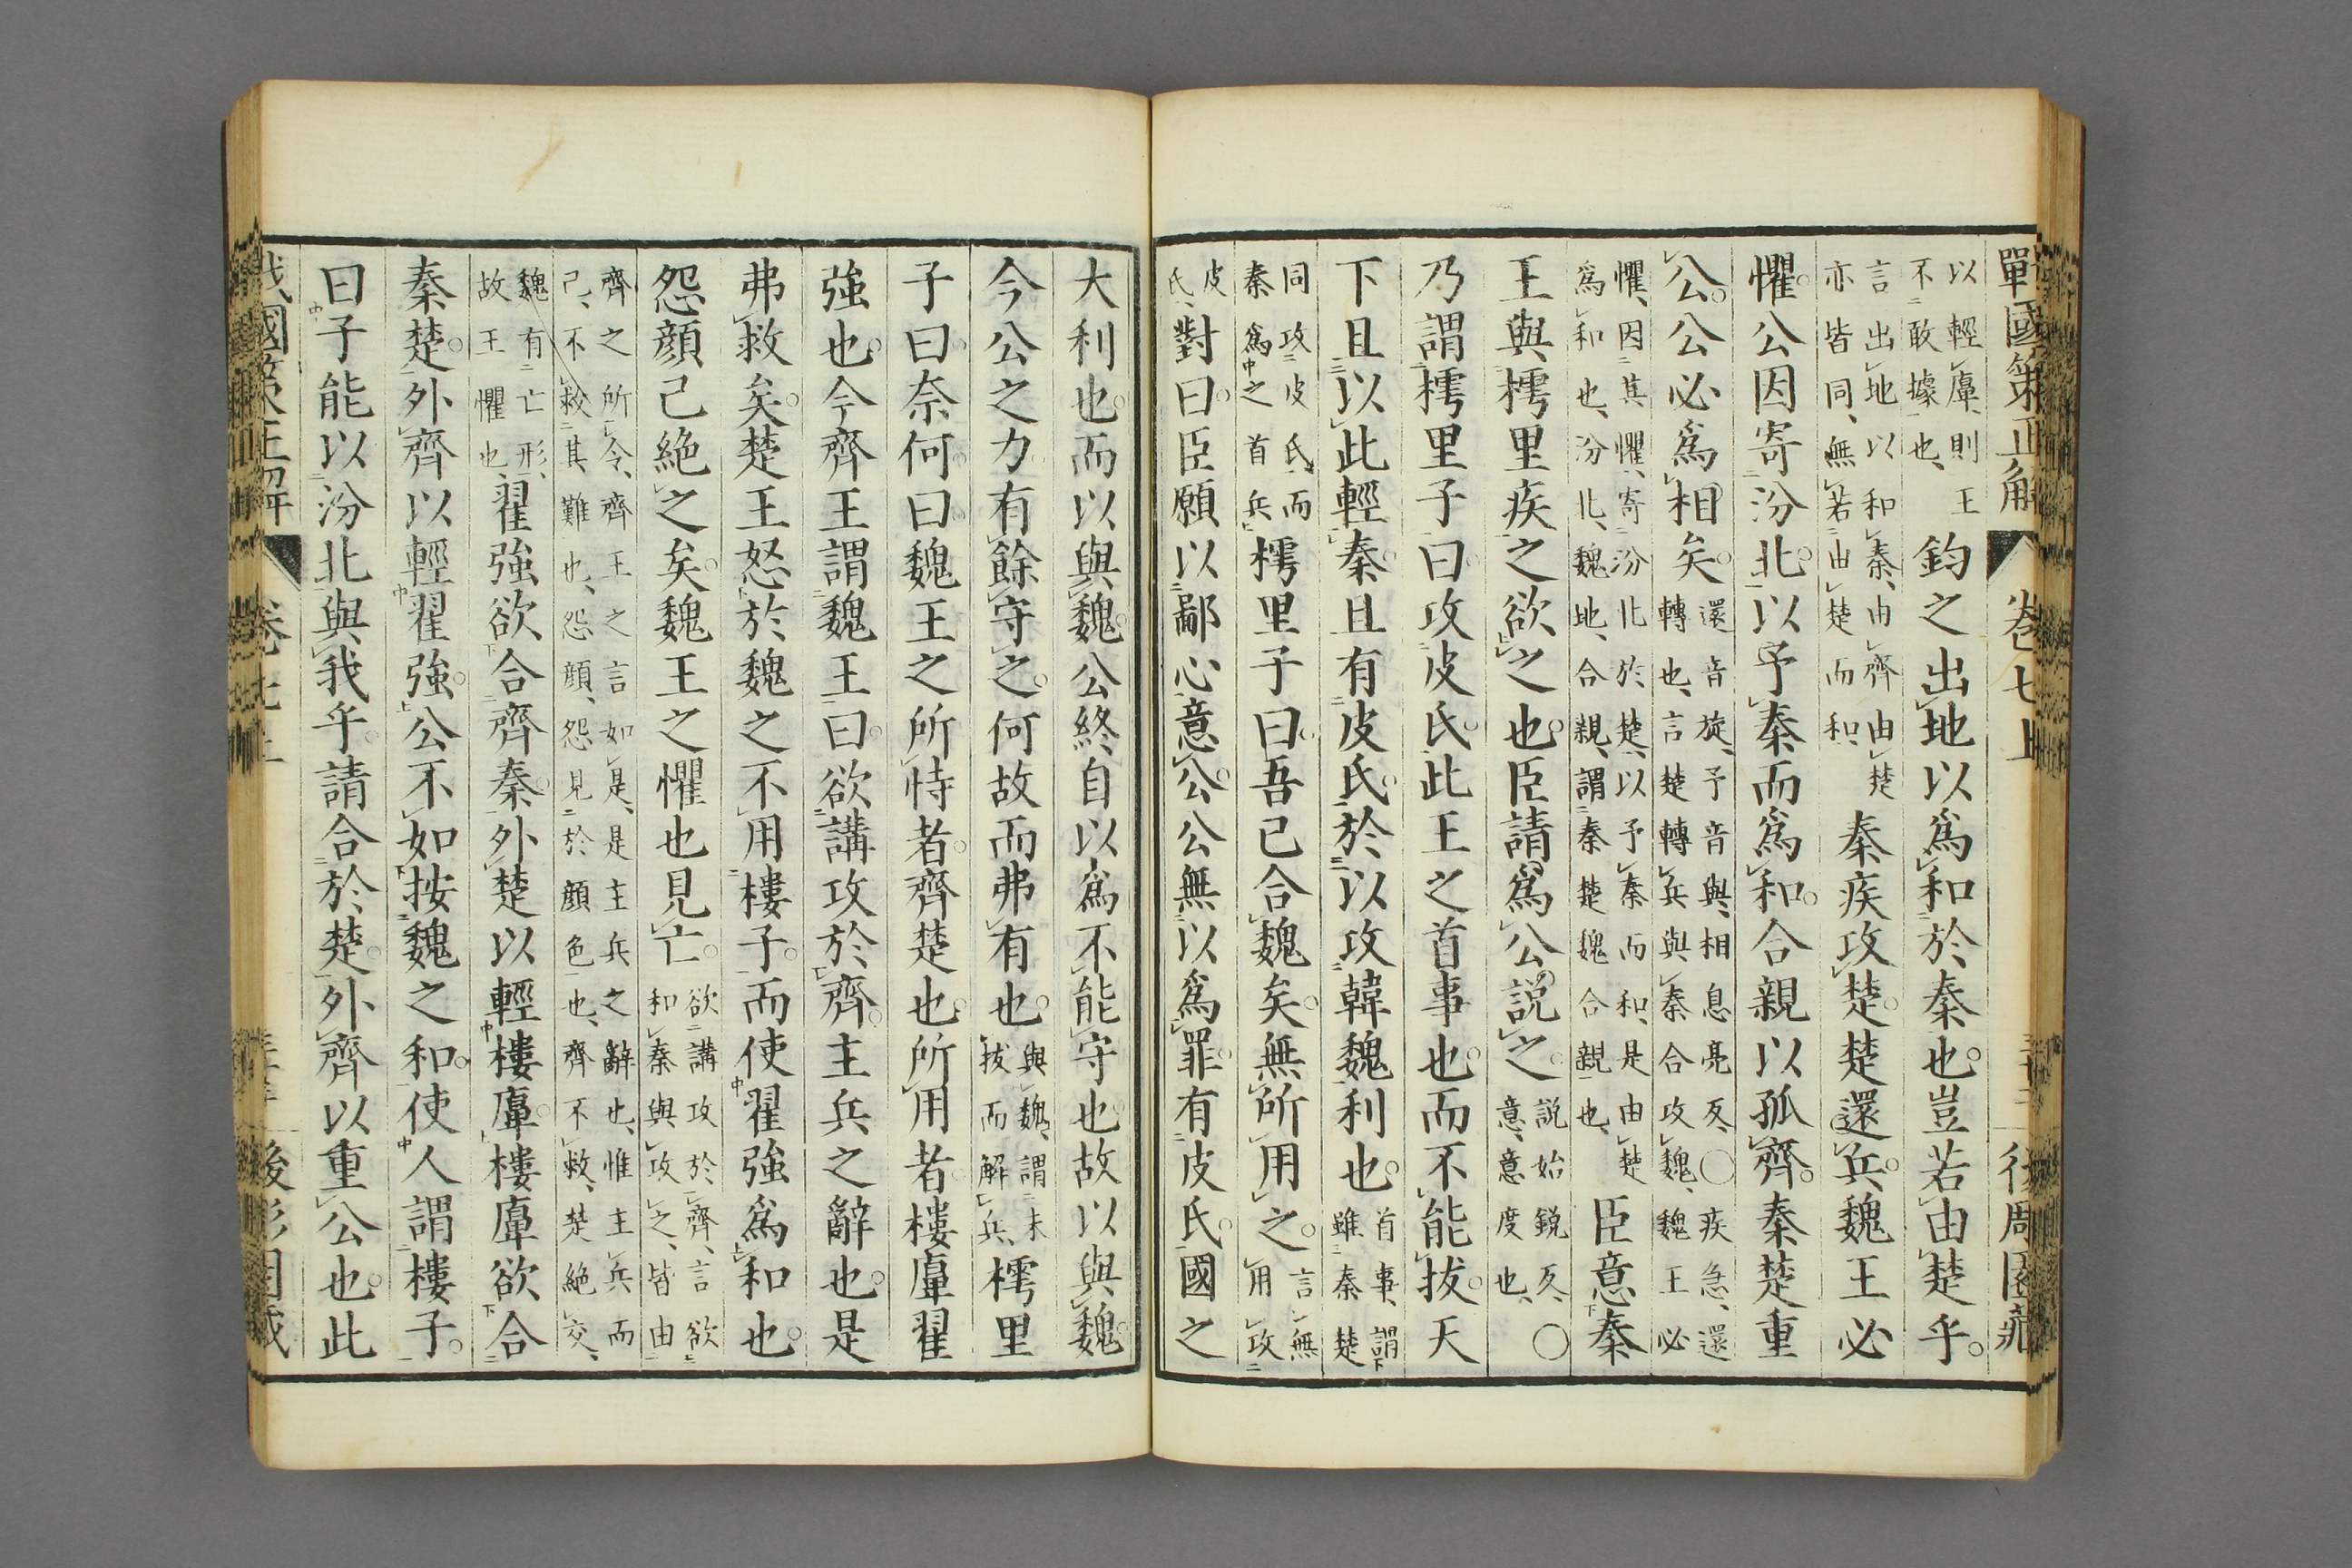 戰國策正解 卷七上 後彫園藏
以輕𢊍、則王
不敢據也、
鈞之出地以爲和於秦也。豈若由楚乎。
言出地以和秦、由齊由楚
亦皆同、無若由楚而和、
秦疾攻楚。楚還兵。魏王必
懼。公因寄汾北。以予秦而爲和。合親以孤齊。秦楚重
公。公必爲相矣。
還音旋、予音與、相息亮反、〇疾急、還
轉也、言楚轉兵與秦合攻魏、魏王必
懼、因其懼、寄汾北於楚、以予秦而和、是由楚
爲和也、汾北、魏地、合親、謂秦楚魏合親也、
臣意秦
王與樗里疾之欲之也。臣請爲公説之。
説始鋭反、〇
意、意度也、
乃謂樗里子曰。攻皮氏。此王之首事也。而不能拔。天
下且以此輕秦。且有皮氏。於以攻韓魏利也。
首事、謂
雖秦楚
同攻皮氏、而
秦爲之首兵
樗里子曰。吾已合魏矣。無所用之。
言無
用攻
皮
氏、
對曰。臣願以鄙心意公。公無以爲罪。有皮氏。國之
大利也。而以與魏。公終自以爲不能守也。故以與魏。
今公之力有餘守之。何故而弗有也。
與魏、謂未
拔而解兵、
樗里
子曰。奈何。曰。魏王之所恃者。齊楚也。所用者。樓𢊍翟
強也。今齊王謂魏王曰。欲講攻於齊。主兵之辭也。是
弗救矣。楚王怒於魏之不用樓子。而使翟強爲和也。
怨顏已絶之矣。魏王之懼也見亡。
欲講攻於齊、言欲
和秦與攻之、皆由
齊之所令、齊王之言如是、是主兵之辭也、惟主兵而
已、不救其難也、怨顏、怨見於顏色也、齊不救、楚絶交、
魏有亡形、
故王懼也、
翟強欲合齊秦。外楚以輕樓𢊍。樓𢊍欲合
秦楚。外齊以輕翟強。公不如按魏之和。使人謂樓子。
曰子能以汾北與我乎。請合於楚。外齊以重公也。此
戰國策正解 卷七上 後彫園藏